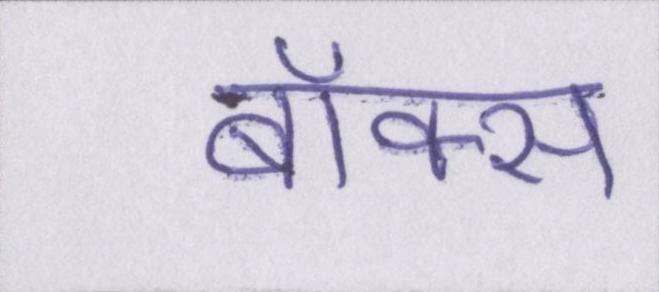 बॉक्स